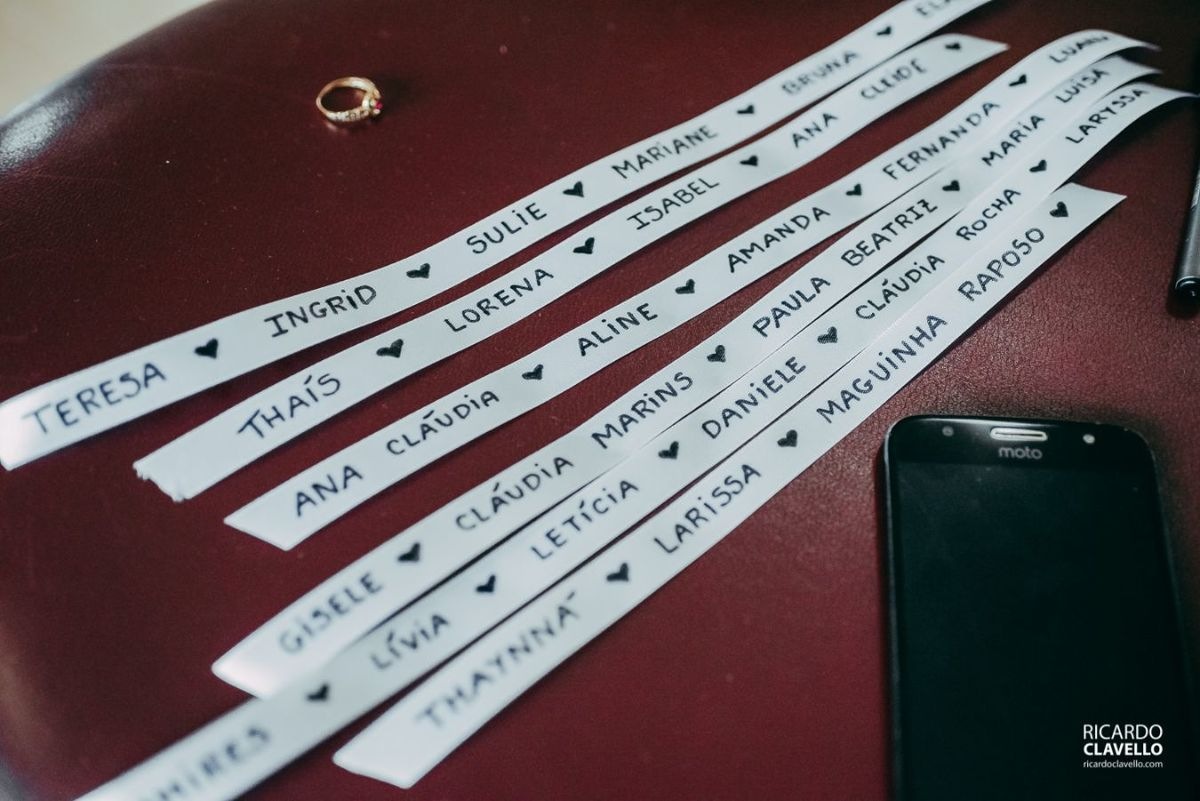 TERESA ♥ INGRID ♥ SULIE ♥ MARIANE ♥ BRUNA ♥
THAÍS ♥ LORENA ♥ ISABEL ♥ ANA CLEIDE ♥
ANA CLÁUDIA ♥ ALINE ♥ AMANDA ♥ FERNANDA ♥
GISELE ♥ CLÁUDIA MARINS ♥ PAULA BEATRIZ ♥ MARIA LUISA
♥ LÍVIA ♥ LETÍCIA ♥ DANIELE ♥ CLÁUDIA ROCHA ♥ LARYSSA
THAYNNÁ ♥ LARISSA ♥ MAGUINHA RAPOSO ♥
moto
RICARDO
CLAVELLO
ricardoclavello.com